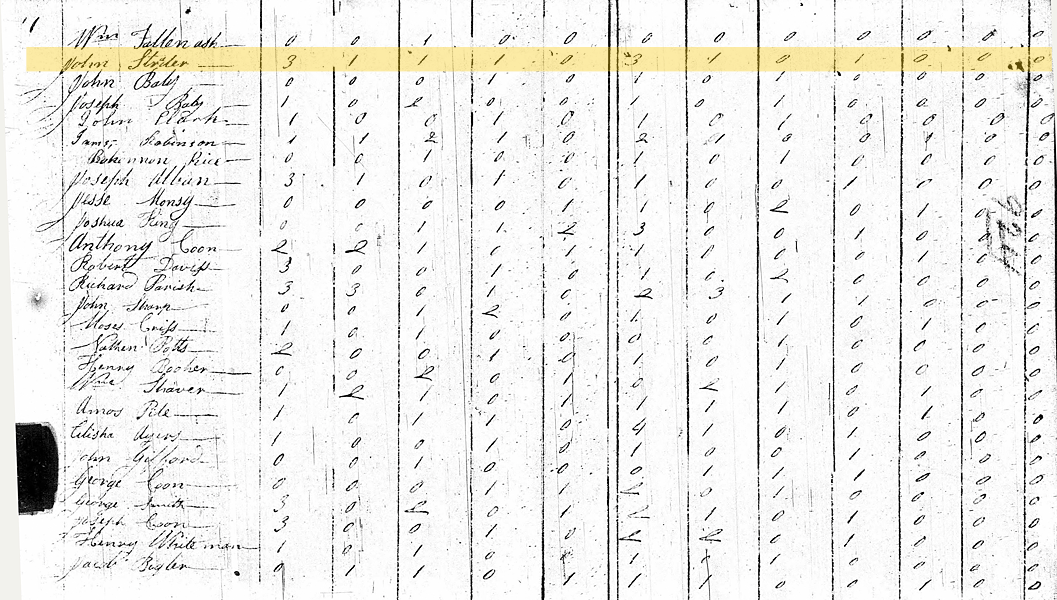 Wm Fallen ash 0 0 1 0 0 0 0 0 0 0 0 0
John Striler 3 1 1 1 0 3 1 0 1 0 0 0
John Baly 0 0 0 1 0 1 0 1 0 0 0 0
Joseph Baly 1 0 2 0 0 1 0 1 0 0 0 0
John Clark 1 0 0 1 0 1 0 1 0 0 0 0
James Robinson 1 1 2 1 0 2 1 0 0 1 0 0
Bohennon Price 0 0 1 0 0 1 0 1 0 0 0
Joseph Alban 3 1 0 1 0 1 0 0 1 0 0
Jesse Monsy 0 0 0 0 1 1 0 2 0 1 0
Joshua King 0 0 1 1 2 3 0 0 1 0 0
Anthony Coon 2 2 1 0 1 1 1 0 0 1 0
Robert Daviss 3 0 0 1 0 1 0 2
Richard Parish 3 3 0 1 0 2 3 1 1 0 0
John Sharp 0 0 1 2 0 1 0 1
Moses Criss 1 0 1 0 0 1 0 1 0 1 0
Nathen Potts 2 0 0 1 0 1 0 1 0 0
Henry Booher 0 0 2 0 1 0
Wm Shaver 1 2 1 0 1 0 2 1 0 1 0
Amos Pile 1 0 1 1 0 1 1 1 0 1 0
Elisha Ayers 1 0 0 1 0 4 1 0 1 0 0
John Gifford 0 0 1 0 0 0 1
George Coon 0 0 0 1 1 0 1
George Smith 3 0 2 0 0 1 0
Joseph Coon 3 0 0 1 0 2 2 0 1 0 0
Henry Whiteman 1 0 1 0 0 1 0 1 0 0 0
Jacob Bigler 0 1 1 0 1 1 1 0 0 1 0 0